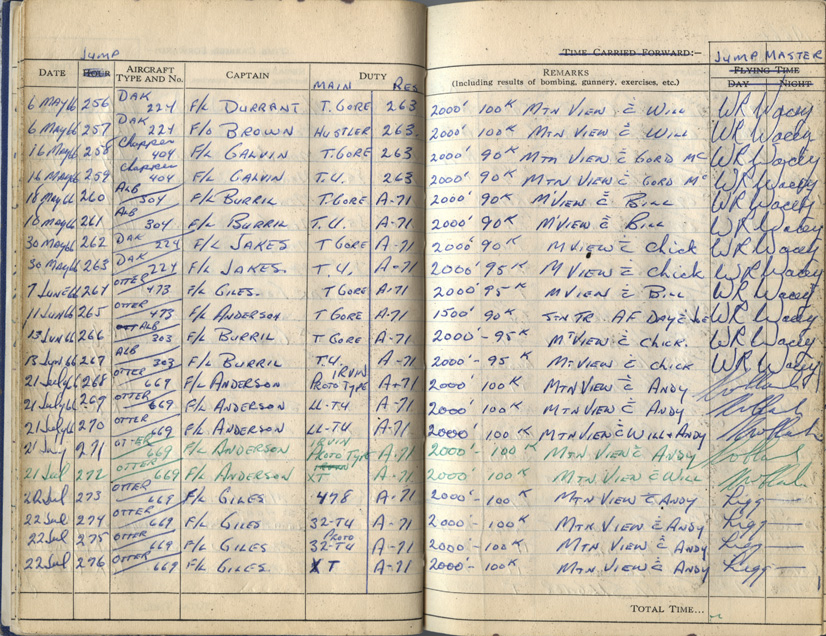 JUMP
TIME CARRIED FORWARD:-
JUMP MASTER
DATE HOUR AIRCRAFT TYPE AND NO. CAPTAIN DUTY REMARKS FLYING TIME
MAIN RES (Including results of bombing, gunnery, exercises, etc.) DAY NIGHT
6 MAY 66 256 DAK 224 F/L DURRANT T. GORE 263 2000' 100K MTN VIEW C̄ WILL WR Wacey
6 MAY 66 257 DAK 224 F/O BROWN HUSTLER 263 2000' 100K MTN VIEW C̄ WILL WR Wacey
16 May 66 258 Chopper 404 F/L GALVIN T. GORE 263 2000' 90K MTN VIEW C̄ GORD Mc WR Wacey
16 MAY 66 259 Chopper 404 F/L GALVIN T.U. 263 2000' 90K MTN VIEW C̄ GORD Mc WR Wacey
18 May 66 260 ALB 304 F/L BURRIL T. GORE A-71 2000' 90K M VIEW C̄ BILL WR Wacey
18 May 66 261 ALB 304 F/L BURRIL T.U. A-71 2000' 90K M VIEW C̄ BILL WR Wacey
30 May 66 262 DAK 224 F/L JAKES T GORE A-71 2000' 90K M VIEW C̄ Chick WR Wacey
30 May 66 263 DAK 224 F/L JAKES. T.U. A-71 2000' 95K M VIEW C̄ Chick WR Wacey
7 JUNE 66 264 OTTER 473 F/L GILES. T GORE A-71 2000' 95K M VIEW C̄ BILL WR Wacey
11 JUN 66 265 OTTER 473 F/L ANDERSON T GORE A-71 1500' 90K STN TR. AF DAY C̄ WR Wacey
13 JUN 66 266 ALB 303 F/L BURRIL T GORE A-71 2000'-95K MT VIEW C̄ CHICK. WR Wacey
13 JUN 66 267 ALB 303 F/L BURRIL T.U. A-71 2000'-95K MT VIEW C̄ CHICK WR Wacey
21 July 66 268 OTTER 669 F/L ANDERSON IRVIN PROTO TYPE A-71 2000' 100K MTN VIEW C̄ ANDY
21 July 66 269 OTTER 669 F/L ANDERSON LL-TU A-71 2000' 100K MTN VIEW C̄ ANDY
21 July 66 270 OTTER 669 F/L ANDERSON LL-TU A-71 2000'-100K MTN VIEW C̄ WILL + ANDY
21 July 271 OTTER 669 F/L ANDERSON IRVIN PROTO TYPE A-71 2000'-100K MTN VIEW C̄ ANDY
21 Jul 272 OTTER 669 F/L ANDERSON XT A-71 2000'-100K MTN. VIEW C̄ WILL
22 Jul 273 OTTER 669 F/L GILES 478 A-71 2000'-100K MTN VIEW C̄ ANDY Rigg
22 Jul 274 OTTER 669 F/L GILES 32-TU A-71 2000'-100K MTN VIEW C̄ ANDY Rigg
22 Jul 275 OTTER 669 F/L GILES PROTO 32-TU A-71 2000'-100K MTN VIEW C̄ ANDY Rigg
22 Jul 276 OTTER 669 F/L GILES. XT A-71 2000'-100K MTN. VIEW C̄ ANDY Rigg
TOTAL TIME...